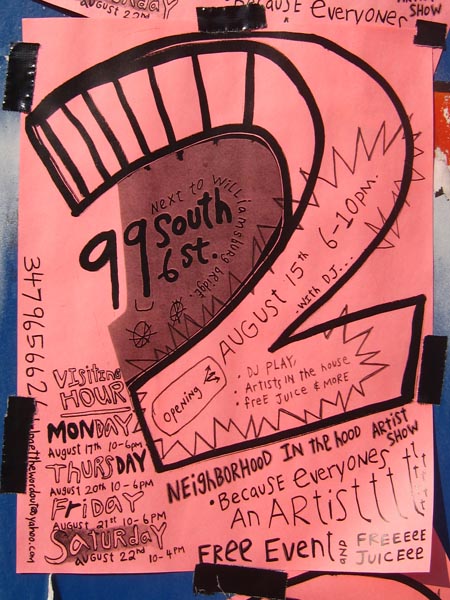 Saturday
August 22nd
Because everyones
Artist
Show
2
Next to Williamsburg bridge.
99 South
6 st.
August 15th 6-10pm.
with DJ...
Opening
• DJ PLAY,
• Artists in the house
• free Juice & MORE
347965662
Visiting
HOUR
MONDAY
August 17th 10-6pm
THURSDAY
August 20th 10-6pm
Friday
August 21st 10-6pm
Saturday
August 22nd 10-4pm
NEighborhood In the hood Artist
Show
• Because everyones
An ARtisttttttt
Free Event AND FREEEEE
JUICEee